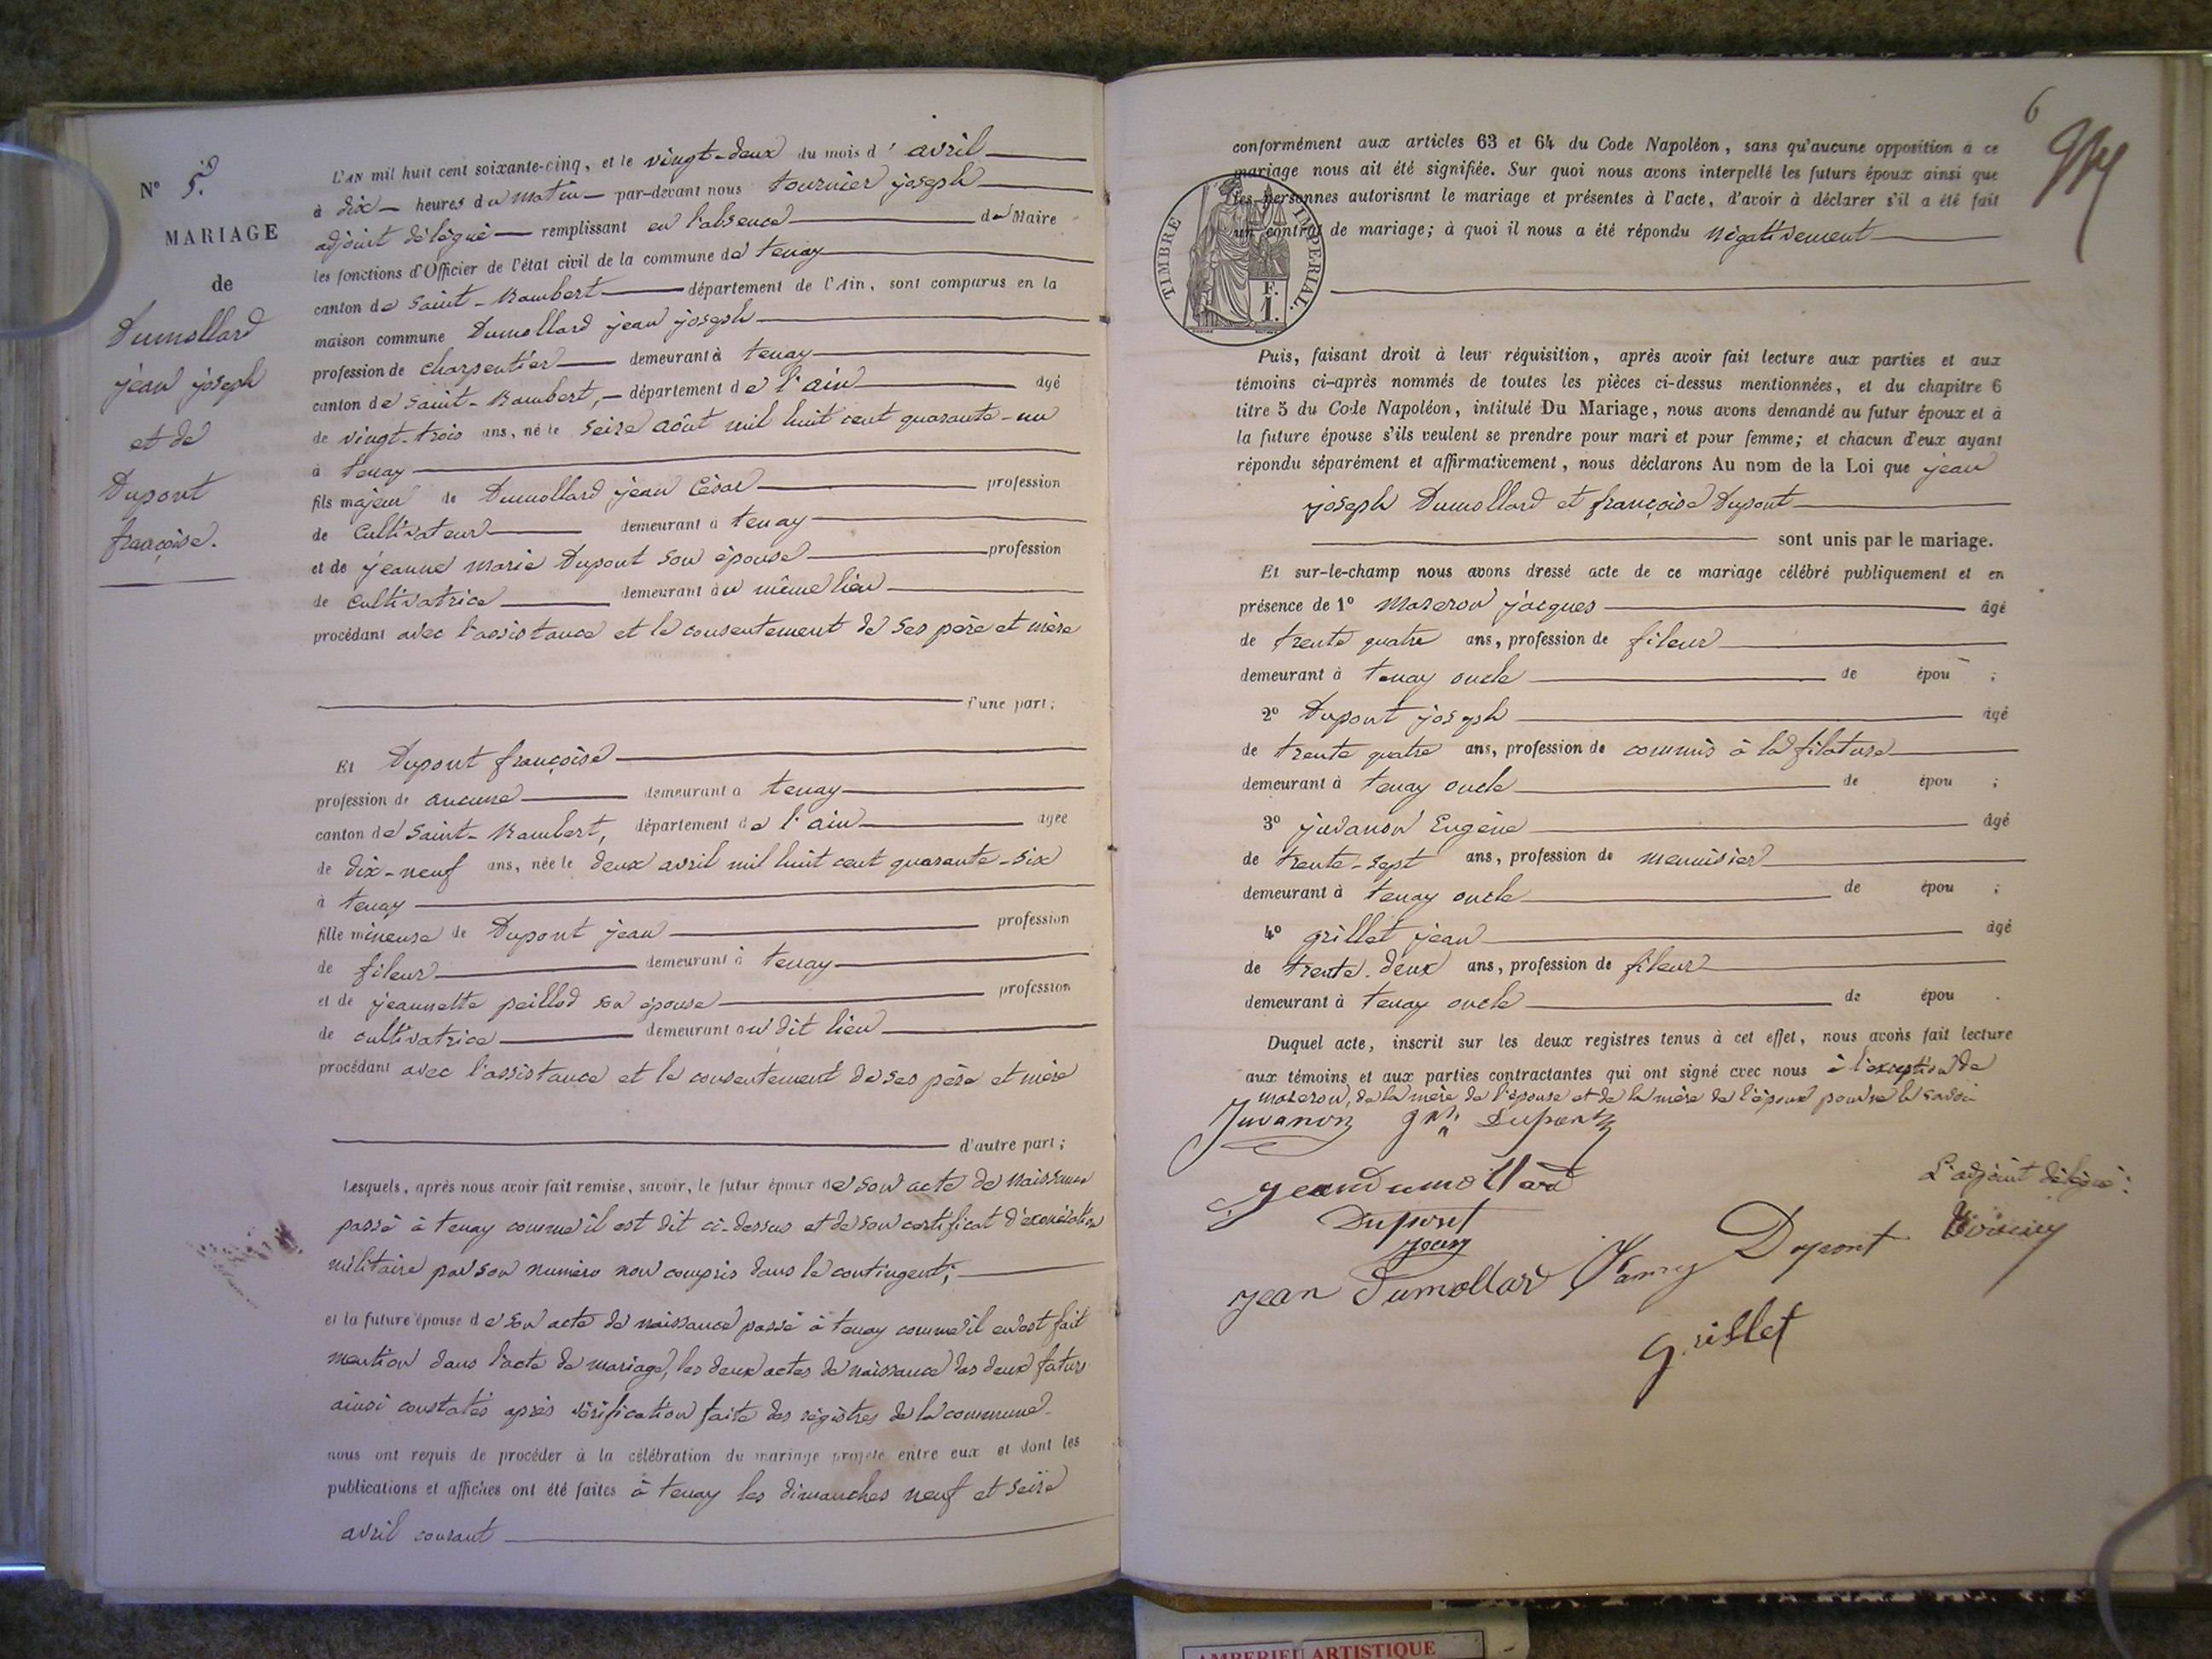 N° 5.
MARIAGE
de
Dumollard
jean joseph
et de
Dupont
françoise.
L'AN mil huit cent soixante-cinq, et le vingt-deux du mois d' avril
à dix heures du matin par-devant nous tournier joseph
adjoint délégué remplissant en l'absence du Maire
les fonctions d'Officier de l'état civil de la commune de tenay
canton de Saint-Rambert département de l'Ain, sont comparus en la
maison commune Dumollard jean joseph
profession de charpentier demeurant à tenay
canton de Saint-Rambert, département de l'ain âgé
de vingt-trois ans, né le seize août mil huit cent quarante-un
à tenay
fils majeur de Dumollard jean César profession
de Cultivateur demeurant à tenay
et de jeanne marie Dupont son épouse profession
de cultivatrice demeurant au même lieu
procédant avec l'assistance et le consentement de ses père et mère
d'une part;
Et Dupont françoise
profession de aucune demeurant à tenay
canton de Saint-Rambert, département de l'ain âgée
de dix-neuf ans, née le deux avril mil huit cent quarante-six
à tenay
fille mineure de Dupont jean profession
de fileur demeurant à tenay
et de jeannette peillod son épouse profession
de cultivatrice demeurant au dit lieu
procédant avec l'assistance et le consentement de ses père et mère
d'autre part;
Lesquels, après nous avoir fait remise, savoir, le futur époux de son acte de naissance
passé à tenay comme il est dit ci-dessus et de son certificat d'exonération
militaire par son numéro non compris dans le contingent;
et la future épouse de son acte de naissance passé à tenay comme il en est fait
mention dans l'acte de mariage, les deux actes de naissance des deux futurs
ainsi constatés après vérification faite des régistres de la commune.
nous ont requis de procéder à la célébration du mariage projeté entre eux et dont les
publications et affiches ont été faites à tenay les dimanches neuf et seize
avril courant
6
conformément aux articles 63 et 64 du Code Napoléon, sans qu'aucune opposition à ce
mariage nous ait été signifiée. Sur quoi nous avons interpellé les futurs époux ainsi que
les personnes autorisant le mariage et présentes à l'acte, d'avoir à déclarer s'il a été fait
un contrat de mariage; à quoi il nous a été répondu négativement
TIMBRE IMPERIAL.
1 F.
Puis, faisant droit à leur réquisition, après avoir fait lecture aux parties et aux
témoins ci-après nommés de toutes les pièces ci-dessus mentionnées, et du chapitre 6
titre 5 du Code Napoléon, intitulé Du Mariage, nous avons demandé au futur époux et à
la future épouse s'ils veulent se prendre pour mari et pour femme; et chacun d'eux ayant
répondu séparément et affirmativement, nous déclarons Au nom de la Loi que jean
joseph Dumollard et françoise Dupont
sont unis par le mariage.
Et sur-le-champ nous avons dressé acte de ce mariage célébré publiquement et en
présence de 1° Mazeron jacques âgé
de trente quatre ans, profession de fileur
demeurant à tenay oncle de épou ;
2° Dupont joseph âgé
de trente quatre ans, profession de commis à la filature
demeurant à tenay oncle de épou ;
3° juvanon Eugène âgé
de trente-sept ans, profession de menuisier
demeurant à tenay oncle de épou ;
4° grillet jean âgé
de trente-deux ans, profession de fileur
demeurant à tenay oncle de épou .
Duquel acte, inscrit sur les deux registres tenus à cet effet, nous avons fait lecture
aux témoins et aux parties contractantes qui ont signé avec nous à l'exception de
mazeron, de la mère de l'épouse et de la mère de l'époux pour ne le savoir
Juvanon Dupont
jean Dumollard
L'adjoint délégué:
Dupont
jean
jean Dumollard Fanny Dupont
grillet
AMBERIEU ARTISTIQUE